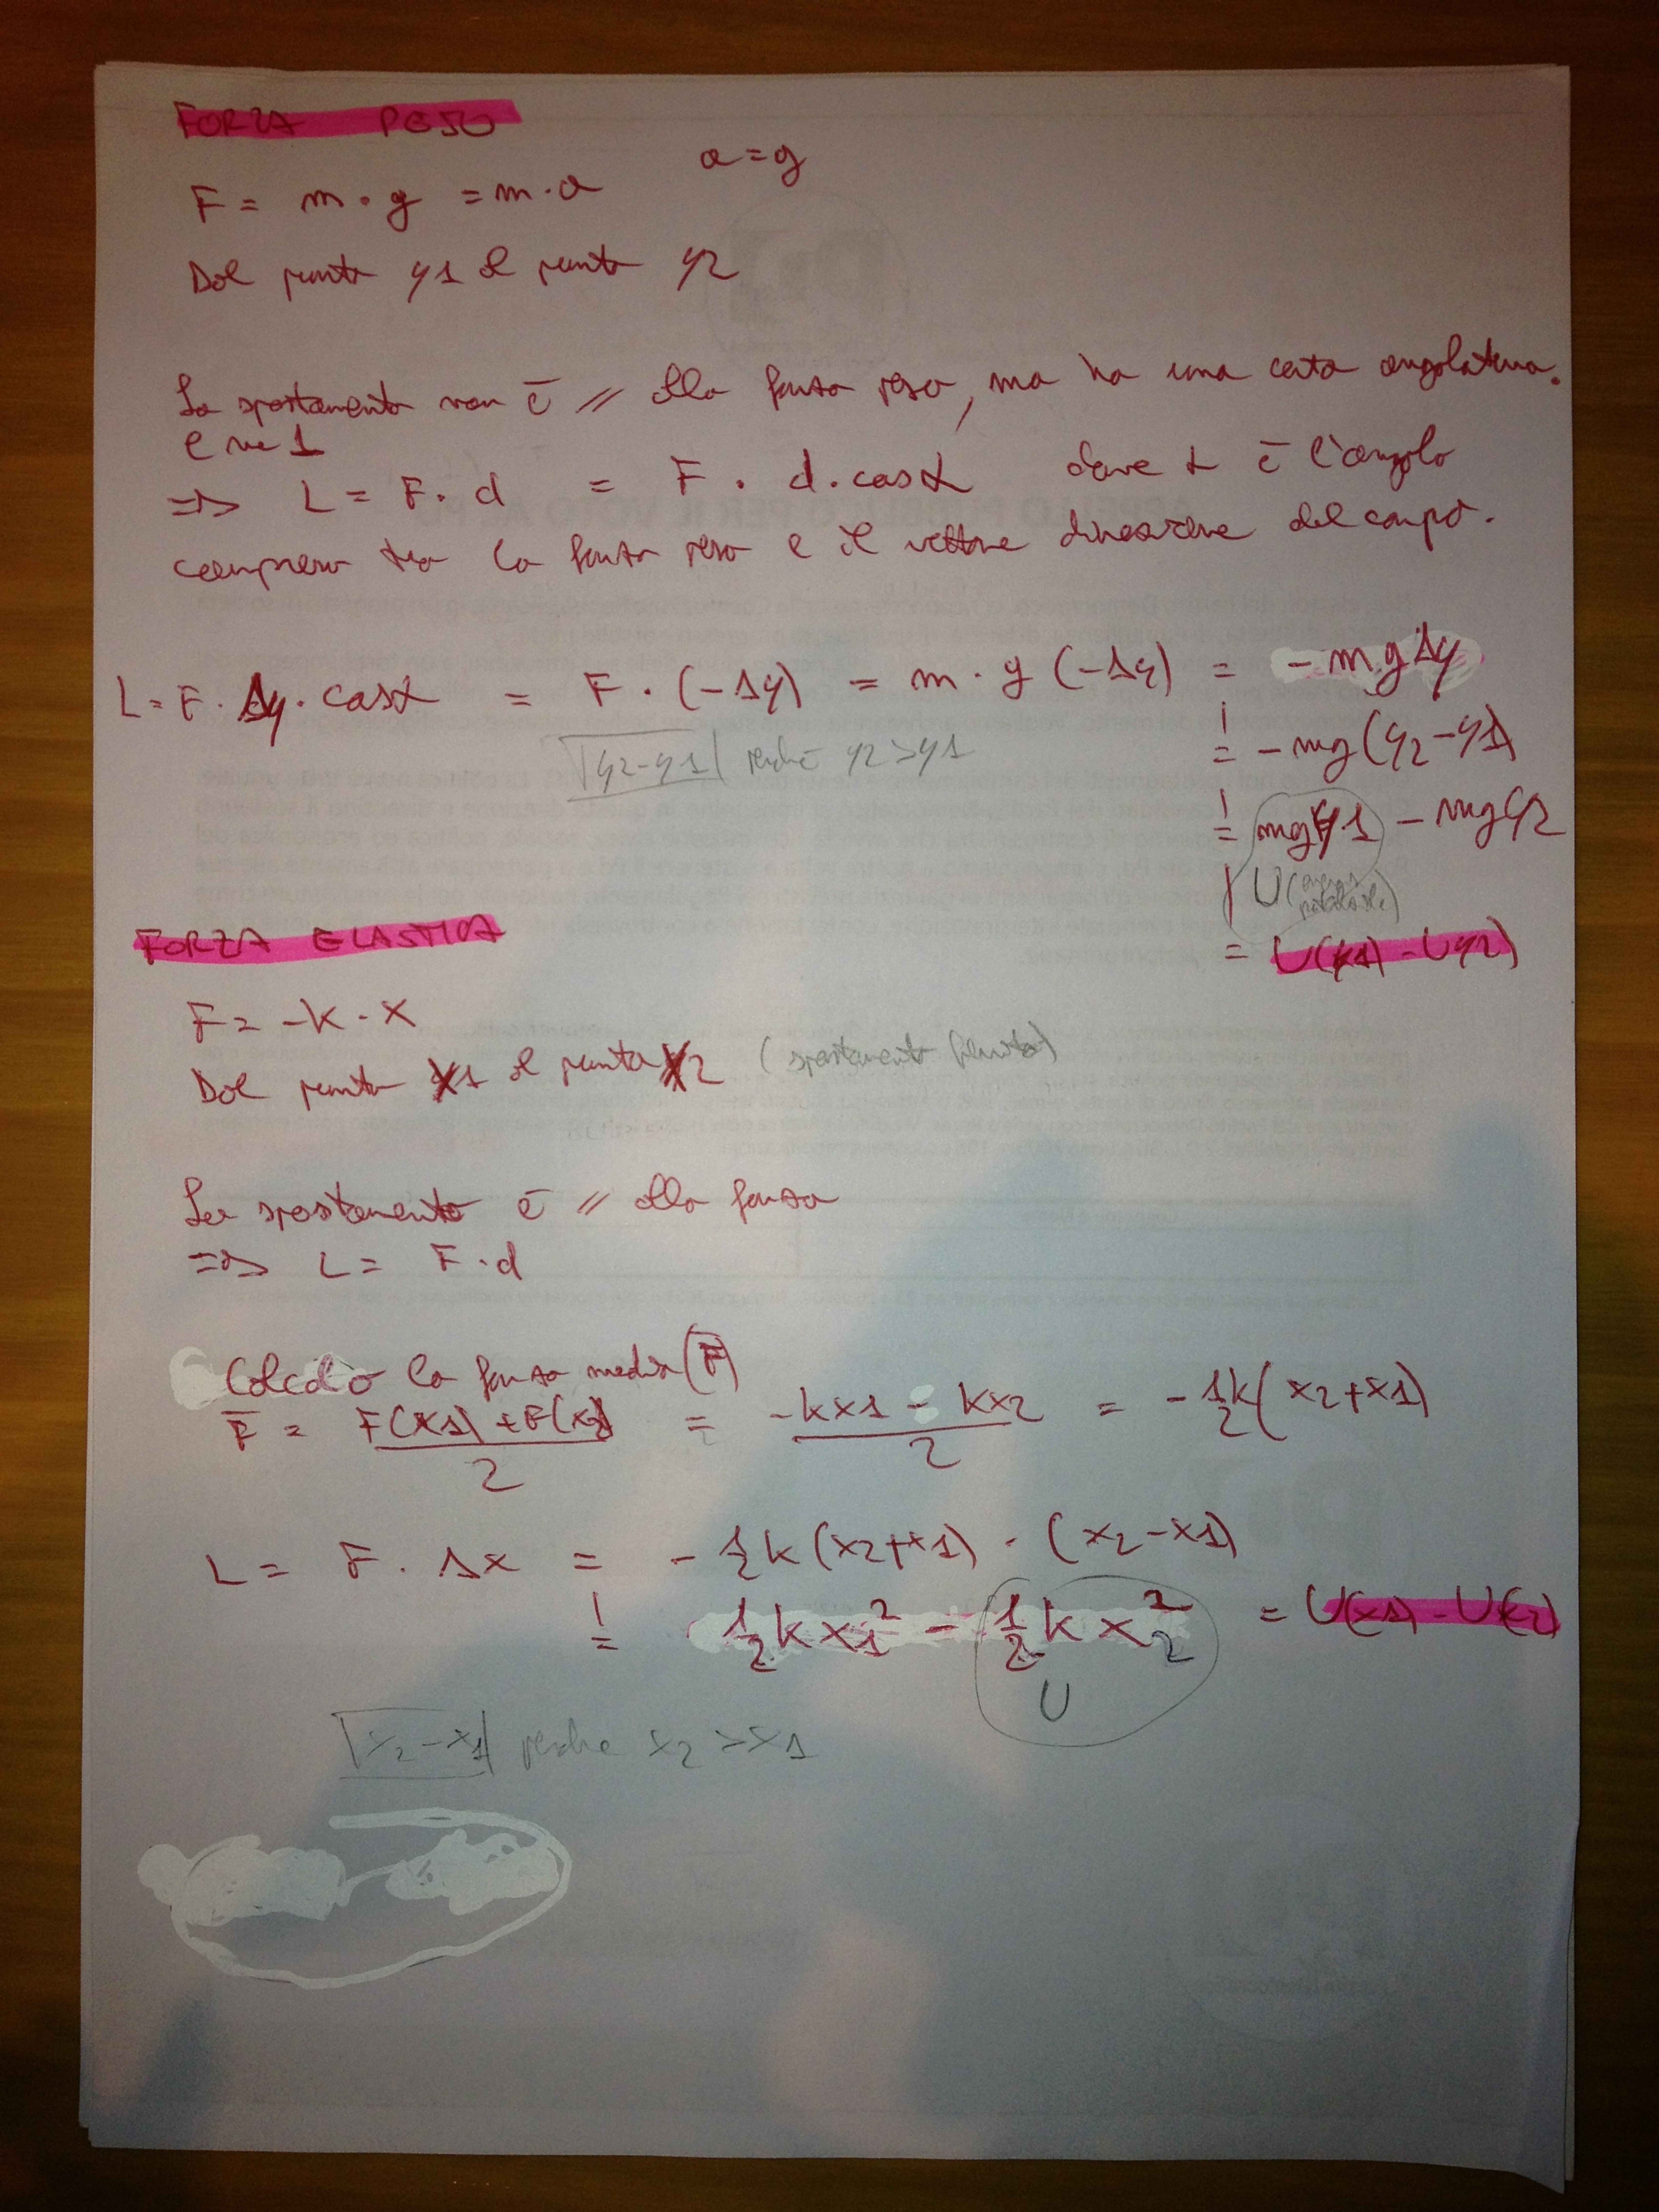 FORZA PESO
a = g
F = m · g = m · a
Dal punto y1 al punto y2
Lo spostamento non è // alla forza peso, ma ha una certa angolatura.
=> L = F · d = F · d · cosα dove α è l'angolo
compreso tra la forza peso e il vettore direzione del corpo.
L = F · Δy · cosα = F · (-Δy) = m · g (-Δy) = - m g Δy
|y2-y1| perché y2 > y1
= - mg (y2-y1)
= mgy1 - mgy2
U (energia potenziale)
= U(y1) - U(y2)
FORZA ELASTICA
F = -K · X
Dal punto X1 al punto X2 (spostamento finito)
Lo spostamento è // alla forza
=> L = F · d
Calcolo la forza media (F̅)
F̅ = F(x1) + F(x2) / 2 = -kx1 - kx2 / 2 = - ½k (x2+x1)
L = F · Δx = - ½k (x2+x1) · (x2-x1)
= ½ k x1² - ½ k x2² = U(x1) - U(x2)
U
|x2-x1| perché x2 > x1